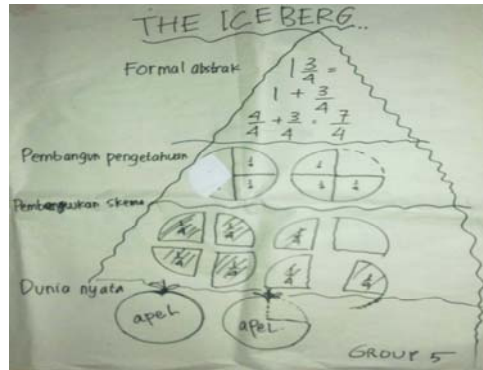 THE ICEBERG..
Formal abstrak
1 3/4 =
1 + 3/4
4/4 + 3/4 = 7/4
Pembangun pengetahuan
1/4 1/4
1/4 1/4 1/4
Pembentukan skema
1/4 1/4 1/4
1/4 1/4 1/4 1/4
Dunia nyata
apel
apel.
GROUP 5